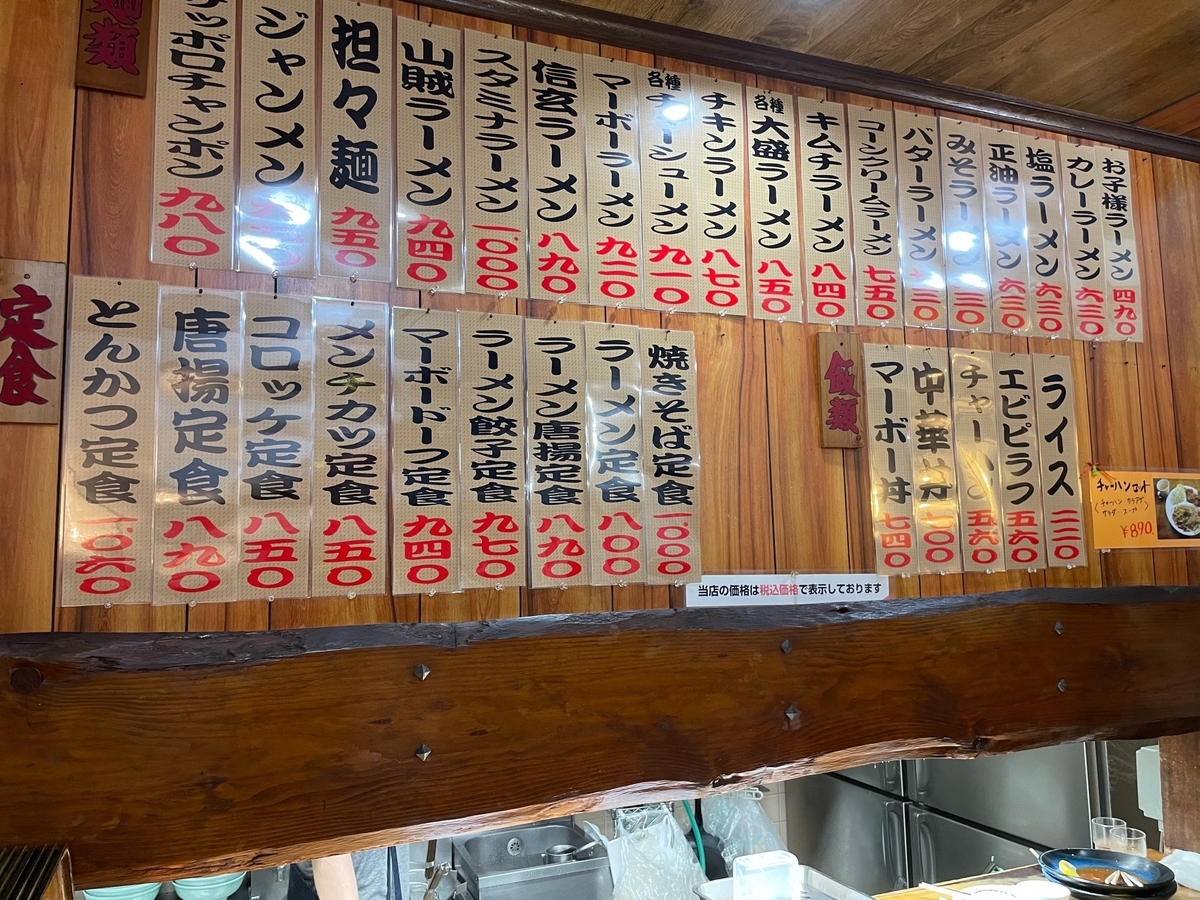 麺類
お子様ラーメン 四九〇
カレーラーメン 六三〇
塩ラーメン 六三〇
正油ラーメン 六三〇
みそラーメン 三〇
バターラーメン 三〇
ラーメン 七五〇
キムチラーメン 八四〇
各種大盛ラーメン 八五〇
チキンラーメン 八七〇
各種チャーシューメン 九一〇
マーボーラーメン 九二〇
信玄ラーメン 八九〇
スタミナラーメン 一〇〇〇
山賊ラーメン 九四〇
担々麺 九五〇
ジャンメン
ッポロチャンポン 九八〇
飯類
ライス 二二〇
エビピラフ 五六〇
チャーハン 五六〇
中華丼 七〇〇
マーボー丼 七四〇
チャーハンセット
¥890.
定食
焼きそば定食 一〇〇〇
ラーメン定食 八〇〇
ラーメン唐揚定食 八九〇
ラーメン餃子定食 九七〇
マーボードーフ定食 九四〇
メンチカツ定食 八五〇
コロッケ定食 八五〇
唐揚定食 八九〇
とんかつ定食 一〇六〇
当店の価格は税込価格で表示しております